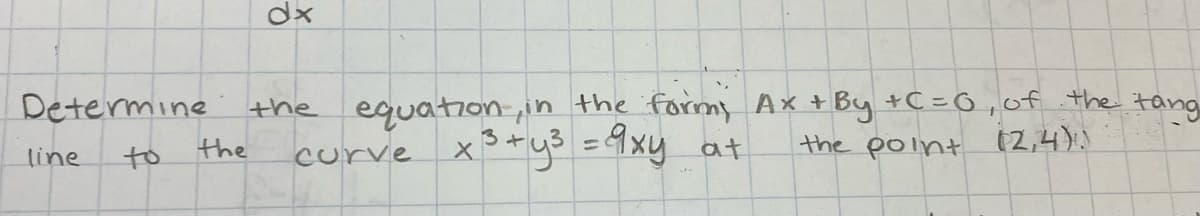 dx
Determine the equation, in the form, Ax + By + C = 0, of the tang
line to the curve x³ + y³ = 9xy at the point (2,4).